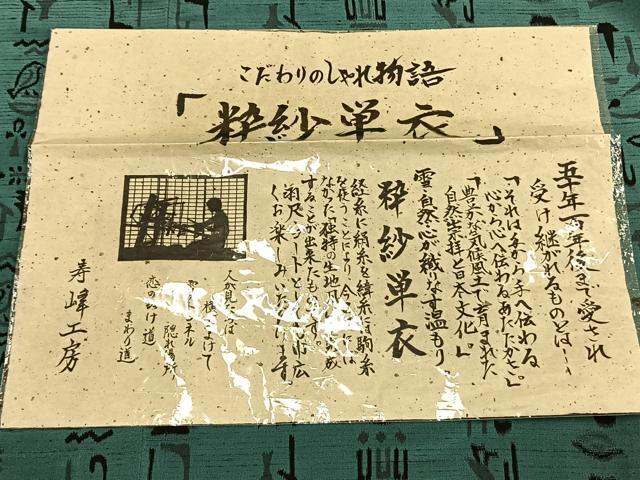 こだわりのしゃれ物語
「粋紗単衣」
五十年百年後まで愛され
受け継がれるものとは…
「それは母から子へ伝わる
心から心へ伝わるあたたかさ。」
「豊かな気候風土で育まれた
自然崇拝と日本文化。」
雪、自然、心が織なす温もり
粋紗単衣
経糸に絹糸を緯糸に駒糸
を使うことにより、今までには
なかった独特の生地風
することが出来たものです。
くお楽しみいただけます
人が見たらば
横によけて
隠れ場所
恋のぬけ道
まわり道
寿峰工房